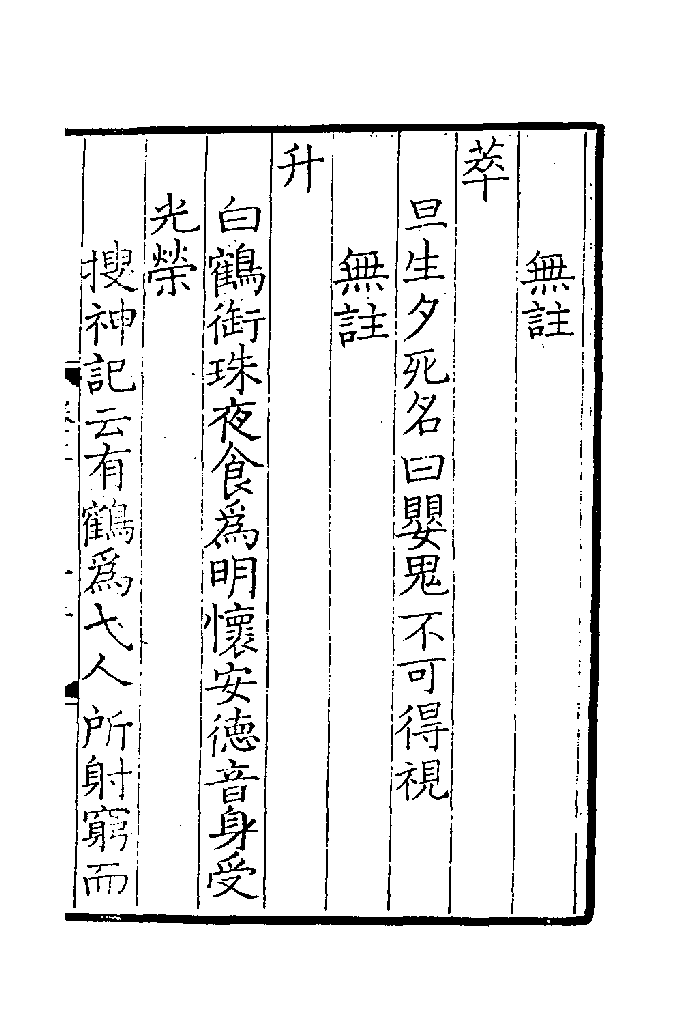 無註
萃
旦生夕死名曰嬰鬼不可得視
無註
升
白鶴銜珠夜食為明懷安德音身受
光榮
搜神記云有鶴為弋人所射窮而